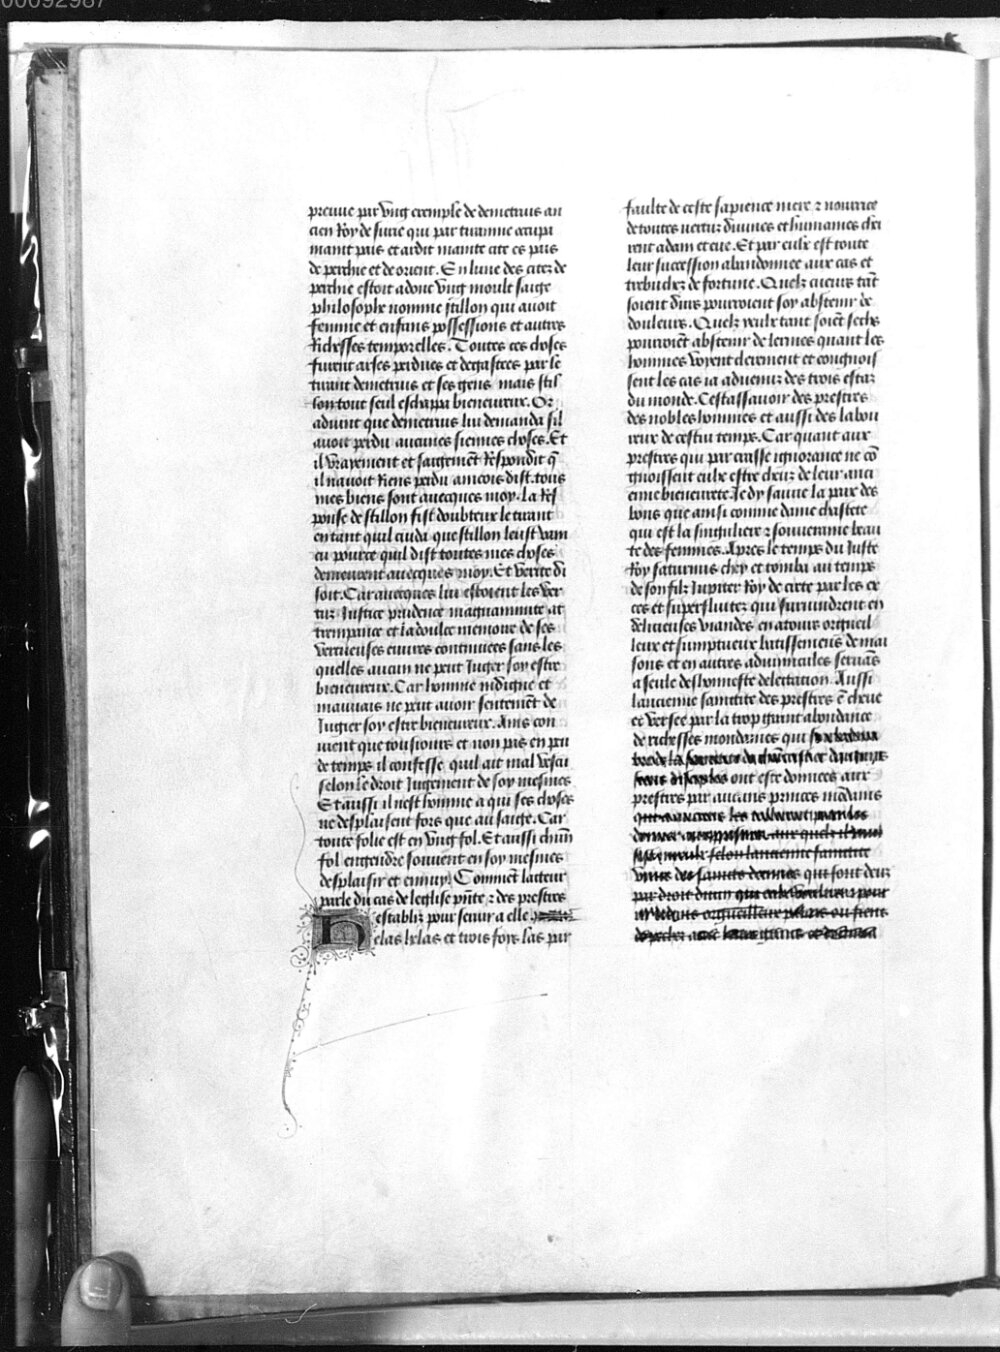 00092987
preuue par vng exemple de demetrius an
cien Roy de surie qui par tirannie occupa
maint pais et ardit mainte cite es pais
de perthie et de orient. En lune des citez de
perthie estoit adonc vng moult saige
philosophe nomme stillon qui auoit
femme et enfans possessions et autres
Richesses temporelles. Toutes ces choses
furent arses perdues et degastees par le
tirant demetrius et ses gens mais stil
lon tout seul eschappa bieneureux. Or
aduint que demetrius luy demanda sil
auoit perdu aucunes siennes choses. Et
il vrayement et saigement Respondit q̃
il nauoit Riens perdu aincois dist. tous
mes biens sont auecques moy. La Res
ponse de stillon fist doubteux le tirant
en tant quil cuida que stillon leust vain
cu pource quil dist toutes mes choses
demeurent auecques moy. Et verite di
soit. Car auecques luy estoient les ver
tuz Justice prudence magnanimite at
trempance et la doulce memoire de ses
vertueuses euures continuees sans les
quelles aucun ne peut Juger soy estre
bieneureux. Car homme indigne et
mauuais ne peut auoir sentement de
Jugier soy estre bieneureux. Ains con
uient que tousiours et non pas en peu
de temps il confesse quil ait mal vescu
selon le droit Jugement de soy mesmes
Et aussi il nest homme a qui ses choses
ne desplaisent fors que au saige. Car
toute folie est en vng fol. Et aussi chũn
fol engendre souuent en soy mesmes
desplaisir et ennuy. Comment lacteur
parle du cas de leglise pñte ⁊ des prestres
establiz pour seruir a elle
Helas helas et trois foys las par
faulte de ceste sapience mere ⁊ nourrice
de toutes vertuz diuines et humaines chei
rent adam et eue. Et par eulx est toute
leur succession abandonnee aux cas et
trebuchez de fortune. Quelz cueurs tãt
soient durs pourroient soy abstenir de
douleurs. Quelz yeulx tant soiẽt sechs
pourroiẽt abstenir de lermes quant les
hommes voyent clerement et congnois
sent les cas ia aduenuz des trois estaz
du monde. Cestassauoir des prestres
des nobles hommes et aussi des labou
reux de cestui temps. Car quant aux
prestres qui par crasse ignorance ne cõ
gnoissent eulx estre cheuz de leur anci
enne bieneurete. Je dy sauue la paix des
bons que ainsi comme dame chastete
qui est la singuliere ⁊ souueraine beau
te des femmes. Apres le temps du Juste
Roy saturnus chey et tomba au temps
de son filz Jupiter Roy de crete par les ex
ces et superfluitez qui suruindrent en
delicieuses viandes en atours orgueil
leux et sumptueux batissemens de mai
sons et en autres adminicules seruãs
a seule deshonneste delectation. Aussi
lancienne sainctite des prestres ẽ cheue
et versee par la trop grant abondance
de richesses mondaines qui
ont este donnees aux
prestres par aucuns princes mõdains
selon lancienne sainctite
qui font deux
par droit diuin